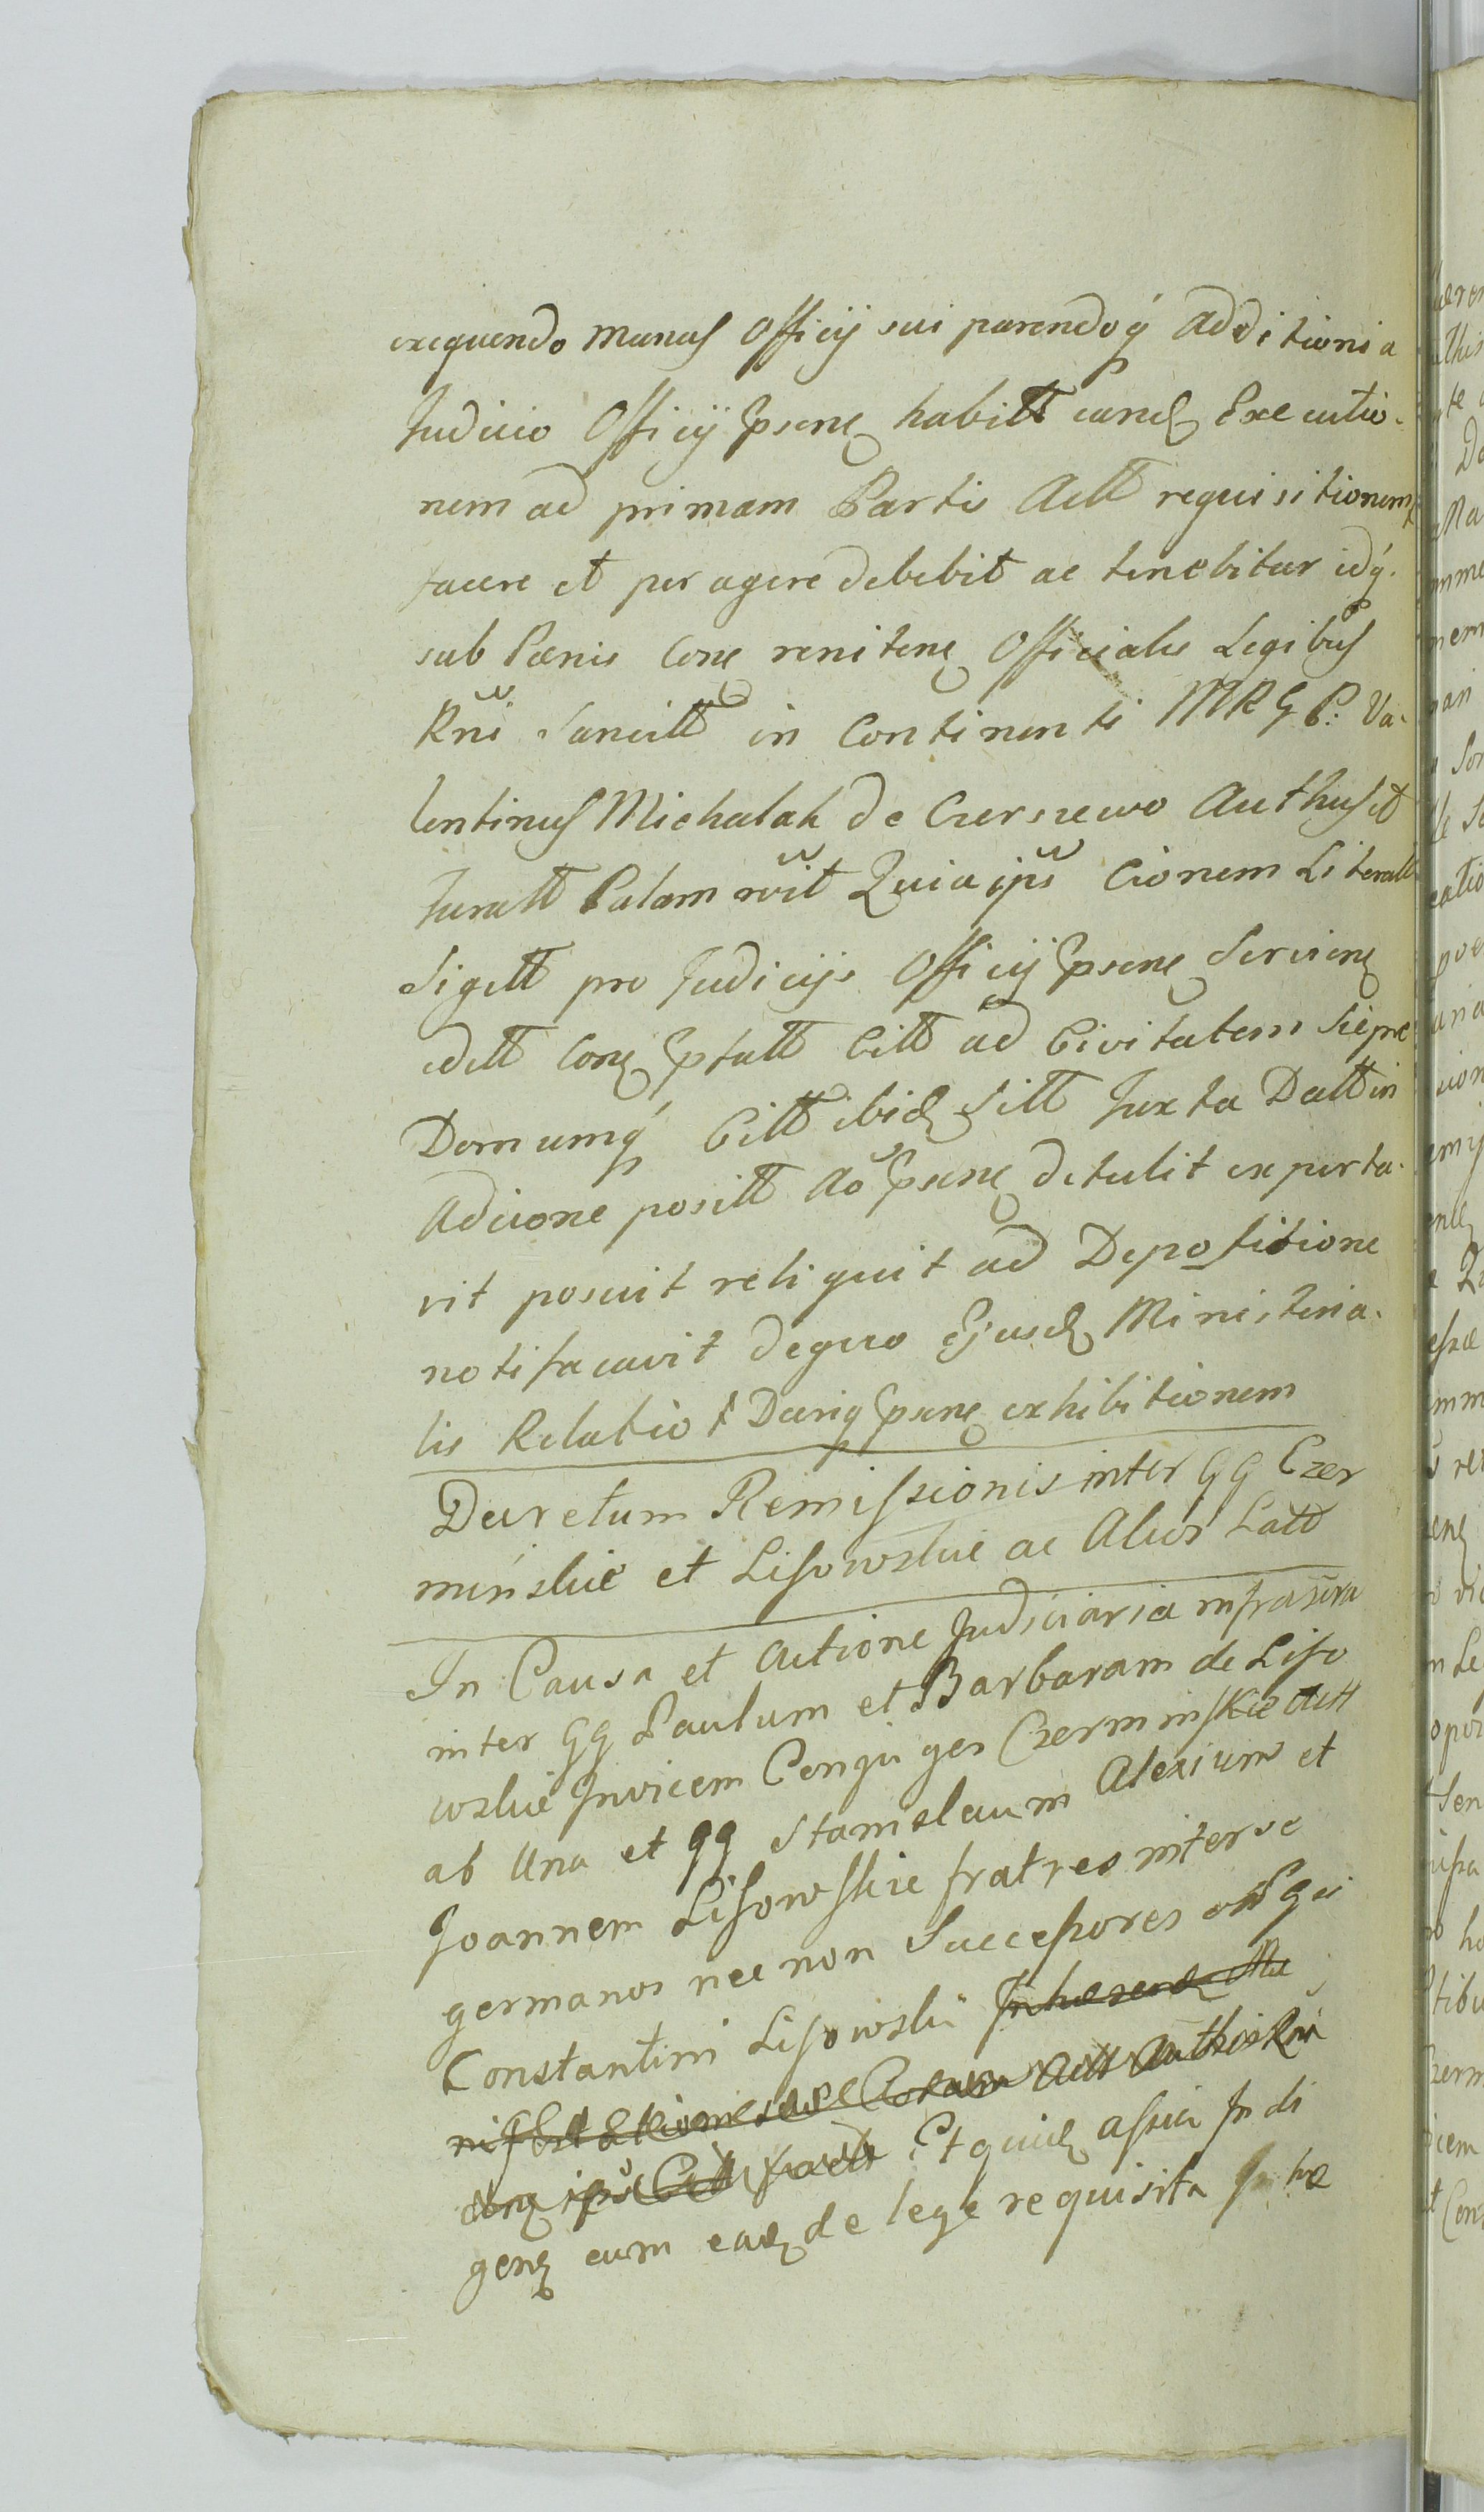 exequendo munus Officij sui parendoq́ additioni a
Judicio Officij Psenę habitt eandę Executio-
nem ad primam Partis Actt requisitionem
facere et peragere debebit ac tenebitur idq́.
sub Pœnis conę renitenę Officiales Legibus
Rni sancitt in Continenti MRGP: Va-
lentinus Michalak de Czerszewo Authus et
Juratt Palam rvit Quia ips Cionem Literatt
Sigett pro Judicijs Officij Psenę Servienę
edtt conę Pstatt Citt ad Civitatem Sieprc
Domumq́ Citt ibidę sitt Juxta Datt in
adicione positt Ao Psenę detulit exporta-
vit posuit reliquit ad Depositione
notificavit dequo Ejusdę Ministeria-
lis Relatio f Decriq Psenę exhibitionem
Decretum Remissionis inter GG Czer
mińskie et Lisowskie ac Alios Latt
In Causa et Actione Judiciaria infrascra
inter GG Paulum et Barbaram de Liso
wskie Invicem Conjuges Czerminskie Actt
ab Una et GG Stanislaum Alexium et
Joannem Lisowskie fratres inter se
germanos nec non Successores olĩ Gsi
Constantini Lisowski Inhærendę Ma
nifestationi suæ Coram Actt Authcis Rni
conę ips Citt factt Et quidę assia Indi
genę cum eadę de lege requisita Inhæ